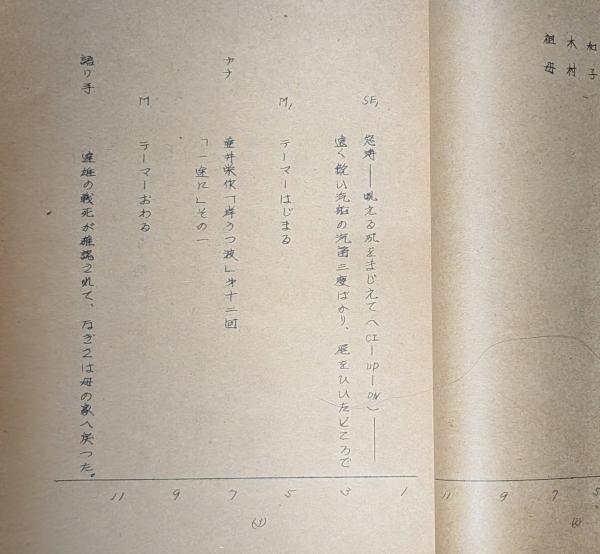 和子
木村
祖母
5
7
9
11
SE, 怒涛――吼える風をまじえて(CI―UP―DN)――
遠く鋭い汽船の汽笛三度ばかり、尾をひいたところで
M, テーマーはじまる
アナ 壷井栄作「岸うつ波」第十二回
「一途に」その一
M テーマーおわる
語り手 達雄の戦死が確認されて、なぎさは母の家へ戻つた。
1
3
5
7
9
11
(1)